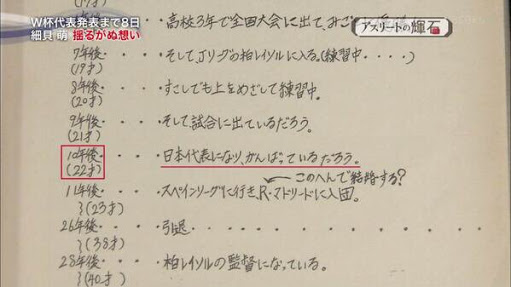 W杯代表発表まで8日
細貝 萌 揺るがぬ想い
アスリートの輝石
高校3年で全国大会に出て、みご
7年後・・・そしてJリーグの柏レイソルに入る。(練習中・・・・)
(19才)
8年後・・・すこしでも上をめざして練習中。
(20才)
9年後・・・そして試合に出ているだろう。
(21才)
10年後・・・日本代表になり、がんばっているだろう。
(22才)
このへんで結婚する?
11年後・・・スペインリーグに行き、R・マドリードに入団。
(23才)
26年後・・・引退・・・・・・・・・・・・
(38才)
28年後・・・柏レイソルの監督になっている。
(40才)